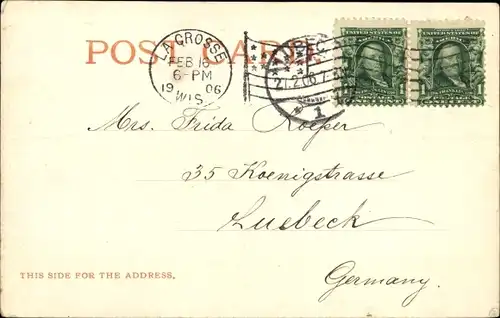 POST CARD
LA CROSSE
FEB 16
6-PM
1906
WIS.
1
UNITED STATES OF AMERICA
UNITED STATES OF AMERICA
1 1
1 1
Mrs. Frida Roeper
35 Koenigstrasse
Luebeck
Germany.
THIS SIDE FOR THE ADDRESS.